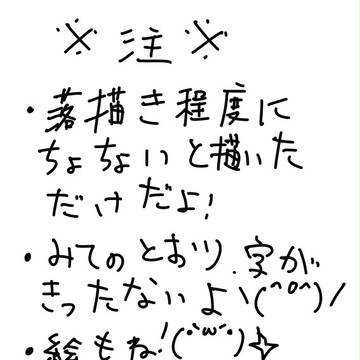 ※注※
・落描き程度に
ちょちょいと描いた
だけだよ!
・みてのとおり、字が
きったないよヽ(^o^)ノ
・絵もね!(・`ω´・)☆